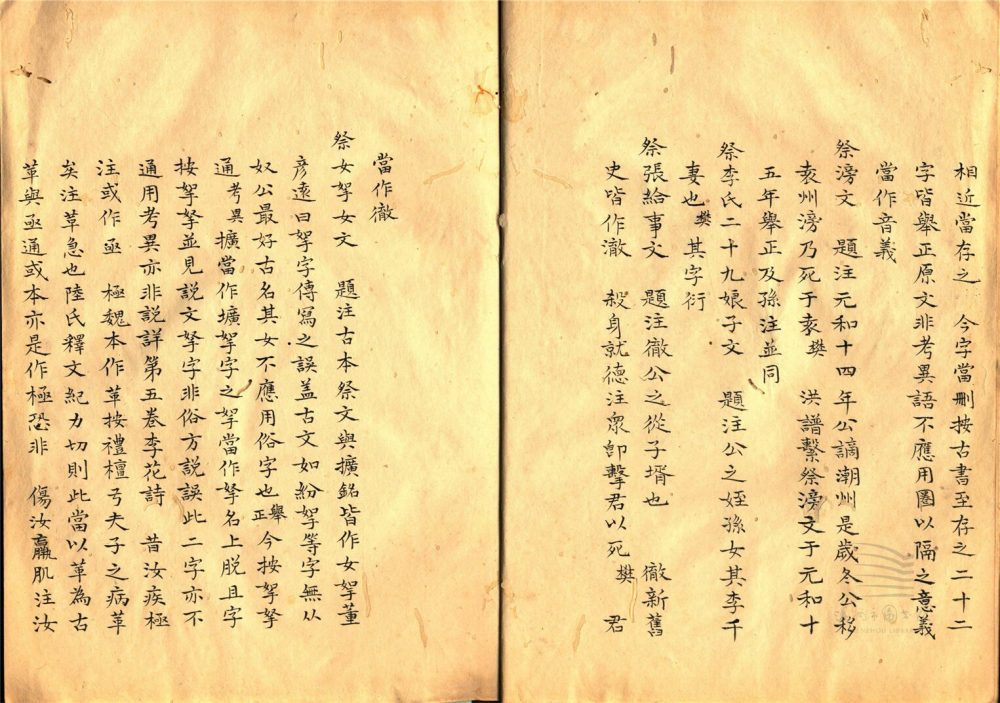 相近當存之　今字當刪按古書至存之二十二
字皆舉正原文非考異語不應用圈以隔之意義
當作音義
祭滂文　題注元和十四年公謫潮州是歲冬公移
袁州滂乃死于袁樊　洪譜繫祭滂文于元和十
五年舉正及孫注並同
祭李氏二十九娘子文　題注公之姪孫女其李千
妻也樊其字衍
祭張給事文　題注徹公之從子壻也　徹新舊
史皆作澈　殺身就德注眾卽擊君以死樊　君
當作徹
祭女挐女文　題注古本祭文與擴銘皆作女挐董
彥遠曰挐字傳寫之誤盖古文如紛挐等字無从
奴公最好古名其女不應用俗字也舉正今按挐拏
通考異擴當作壙挐字之挐當作拏名上脱且字
按挐拏並見説文拏字非俗方説誤此二字亦不
通用考異亦非説詳第五巻李花詩　昔汝疾極
注或作亟　極魏本作革按禮檀弓夫子之病革
矣注草急也陸氏釋文紀力切則此當以革為古
革與亟通或本亦是作極恐非　傷汝羸肌注汝